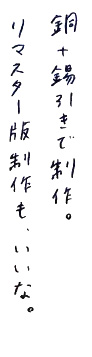 銅+錫引きで制作。
リマスター版制作も、いいな。